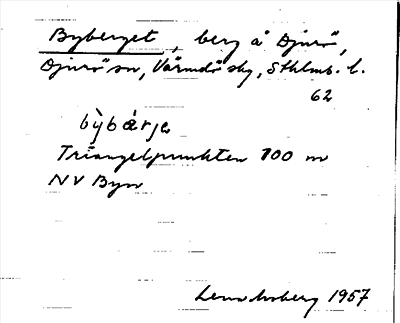 Byberget, berg å Djurö,
Djurö sn, Värmdö skg, Sthlms. l.
62
by̆bær̀je
Triangelpunkten 100 m
NV Byn
1957